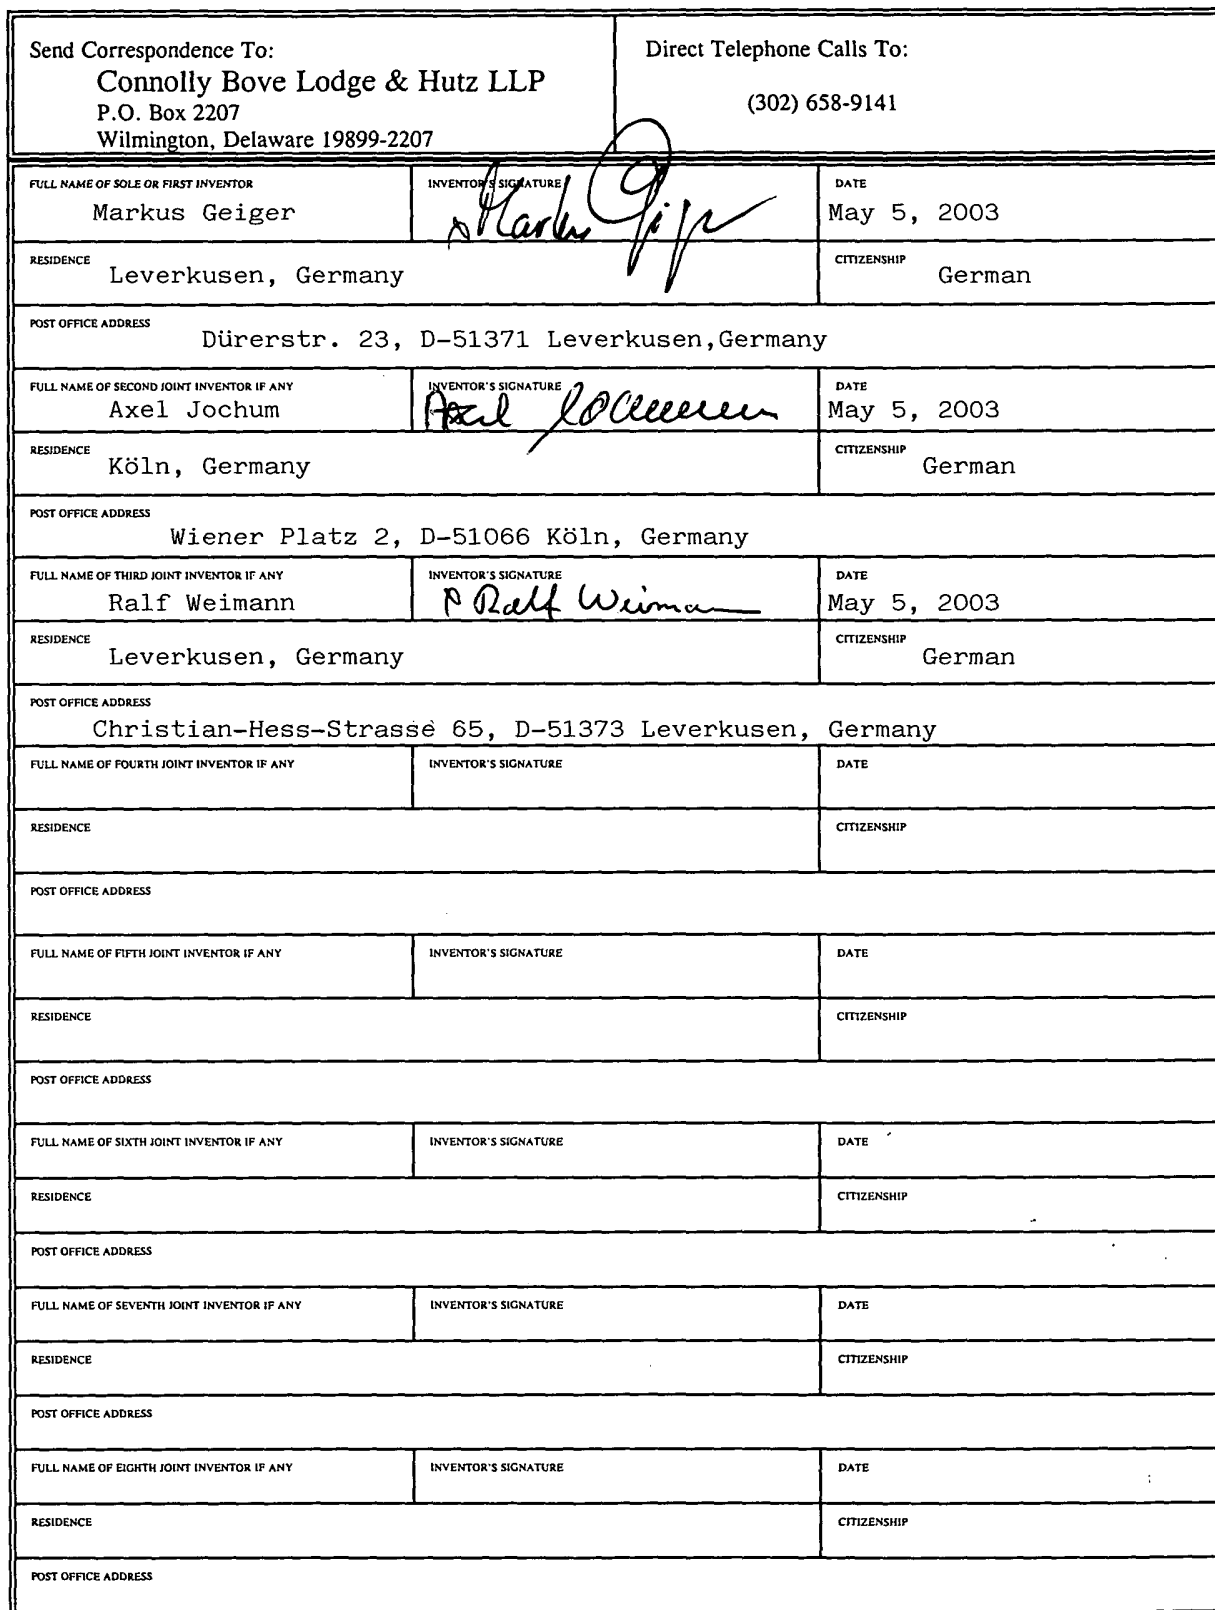 Send Correspondence To:
Connolly Bove Lodge & Hutz LLP
P.O. Box 2207
Wilmington, Delaware 19899-2207
Direct Telephone Calls To:
(302) 658-9141
FULL NAME OF SOLE OR FIRST INVENTOR
Markus Geiger
INVENTOR'S SIGNATURE
Markus
DATE
May 5, 2003
RESIDENCE
Leverkusen, Germany
CITIZENSHIP
German
POST OFFICE ADDRESS
Dürerstr. 23, D-51371 Leverkusen,Germany
FULL NAME OF SECOND JOINT INVENTOR IF ANY
Axel Jochum
INVENTOR'S SIGNATURE
Axel Jochum
DATE
May 5, 2003
RESIDENCE
Köln, Germany
CITIZENSHIP
German
POST OFFICE ADDRESS
Wiener Platz 2, D-51066 Köln, Germany
FULL NAME OF THIRD JOINT INVENTOR IF ANY
Ralf Weimann
INVENTOR'S SIGNATURE
Ralf Weimann
DATE
May 5, 2003
RESIDENCE
Leverkusen, Germany
CITIZENSHIP
German
POST OFFICE ADDRESS
Christian-Hess-Strasse 65, D-51373 Leverkusen, Germany
FULL NAME OF FOURTH JOINT INVENTOR IF ANY
INVENTOR'S SIGNATURE
DATE
RESIDENCE
CITIZENSHIP
POST OFFICE ADDRESS
FULL NAME OF FIFTH JOINT INVENTOR IF ANY
INVENTOR'S SIGNATURE
DATE
RESIDENCE
CITIZENSHIP
POST OFFICE ADDRESS
FULL NAME OF SIXTH JOINT INVENTOR IF ANY
INVENTOR'S SIGNATURE
DATE
RESIDENCE
CITIZENSHIP
POST OFFICE ADDRESS
FULL NAME OF SEVENTH JOINT INVENTOR IF ANY
INVENTOR'S SIGNATURE
DATE
RESIDENCE
CITIZENSHIP
POST OFFICE ADDRESS
FULL NAME OF EIGHTH JOINT INVENTOR IF ANY
INVENTOR'S SIGNATURE
DATE
RESIDENCE
CITIZENSHIP
POST OFFICE ADDRESS